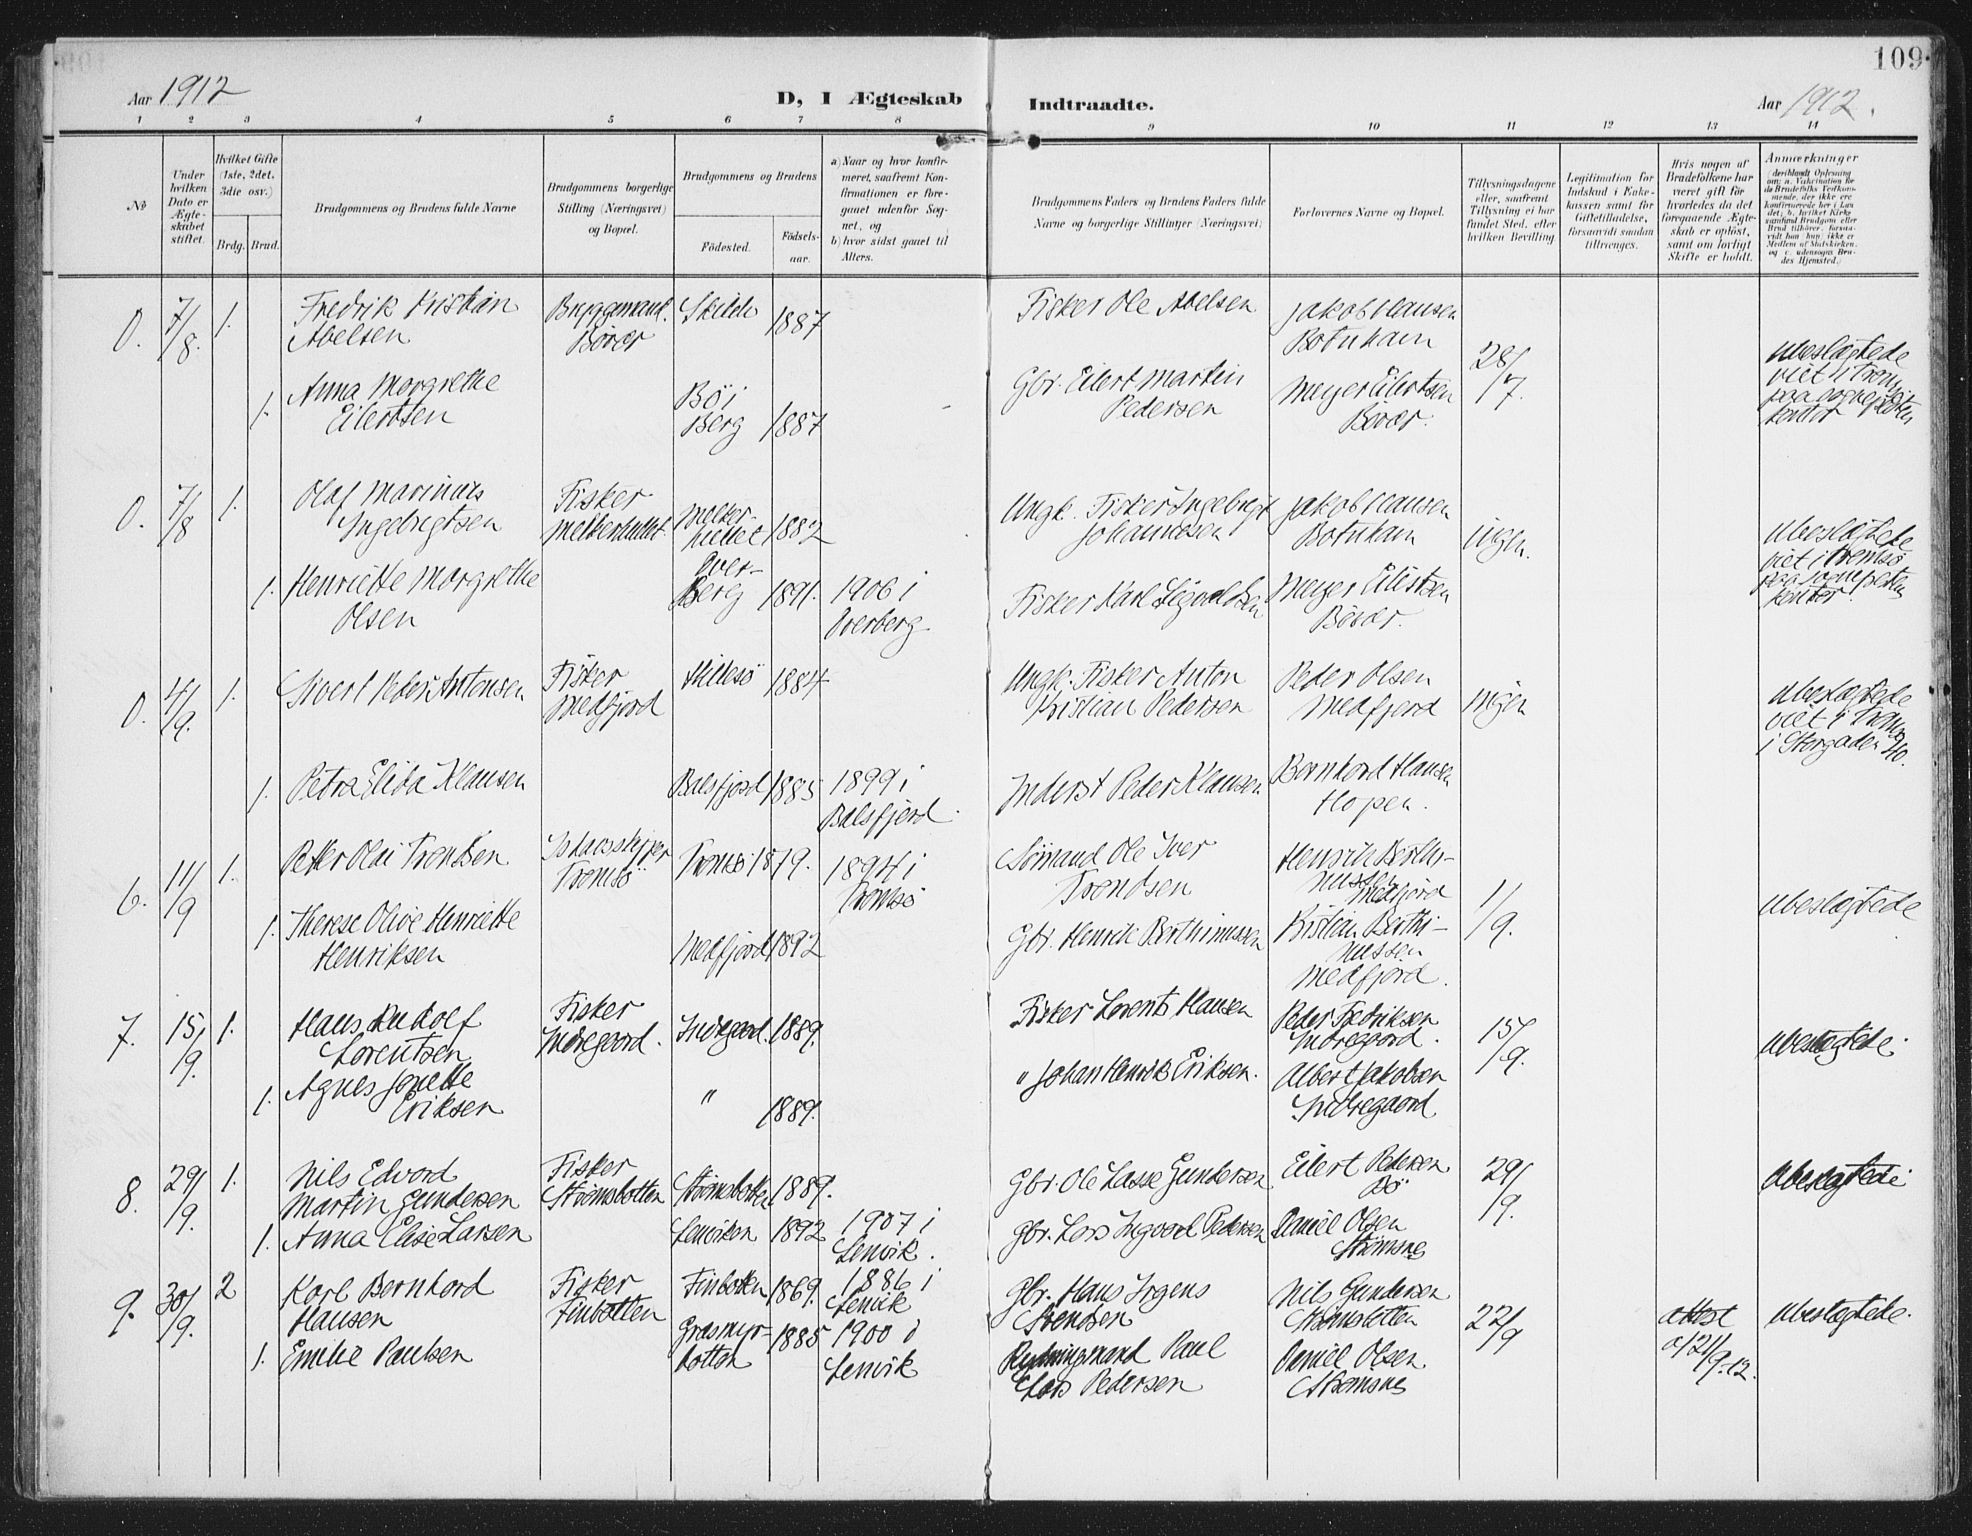 109
Aar 1912
D, I Ægteskab
Indtraadte.
Aar 1912.
1 2 3 4 5 6 7 8 9 10 11 12 13 14
No
Under hvilken Dato er Ægteskabet stiftet.
Hvilket Gifte (1ste, 2det, 3die osv.)
Brdg. Brud.
Brudgommens og Brudens fulde Navne
Brudgommens borgerlige Stilling (Næringsvei) og Bopæl.
Brudgommens og Brudens
Födested.
Födsels-aar.
a) Naar og hvor konfir-
meret, saafremt Kon-
firmationen er fore-
gaaet udenfor Sog-
net, og
b) hvor sidst gaaet til
Alters.
Brudgommens Faders og Brudens Faders fulde
Navne og borgerlige Stillinger (Næringsvei)
Forlovernes Navne og Bopæl.
Tillysningsdagene
eller, saafremt
Tillysning ei har
fundet Sted, efter
hvilken Bevilling.
Legitimation for
Indskud i Enke-
kassen samt for
Giftetilladelse,
forsaavidt saadan
tiltrænges.
Hvis nogen af
Brudefolkene har
været gift för
hvorledes da det
foregaaende Ægte-
skab er oplöst,
samt om lovligt
Skifte er holdt.
Anmærkninger
0. 7/8. 1. Fredrik Kristian Abelsen Bryggemand. Bövær 1887 Fisker Ole Abelsen Jakob Hansen Botnhavn
1. Anna Margrethe Eilertsen Bö i Berg 1887 Gbr. Eilert Martin Pedersen Meyer Eilertsen Bövær. 28/7. ubeslægtede viet i Troms paa sognepresten kontor
0. 7/8 1. Olaf Marinius Ingebrigtsen Fisker 1882 Ungk. Fisker Ingebrigt Johannesen Jakob Hansen Botnhavn ingen.
1. Henriette Margrethe Olsen Over-Berg 1891. 1906 i Overberg Fisker Karl Sigvaldsen Meyer Eilertsen Bövær. ubeslægtede viet i Tromsö paa sognepresten kontor.
0. 4/9. 1. Sivert Peder Antonsen Fisker Medfjord Hillesö 1884 Ungk. Fisker Anton Kristian Pedersen Peder Olsen Medfjord ingen ubeslægtede viet i Troms i Storgaden 40.
1. Petra Elida Klausen Balsfjord 1885 1899 i Balsfjord. Inderst Peder Klausen Bernhard Hansen Hopen.
6. 11/9 1. Petter Olai Trondsen Ishavsskipper Tromsö Tromsö 1879. 1894 i Tromsö Sömand Ole Iver Trondsen Henrik Berthi-nussen Medfjord 1/9. ubeslægtede
1. Therese Olive Henriette Henriksen Medfjord 1892 Gbr. Henrik Berthinussen Kristian Berthi-nussen Medfjord.
7. 15/9. 1. Hans Rudolf Lorentsen Fisker Indregaard. Indregaard. 1889. Fisker Lorents Hansen Peder Fredriksen Indregaard. 15/9. ubeslægtede.
1. Agnes Jonette Eriksen " 1889. " Johan Henrik Eriksen. Albert Jakobsen Indregaard
8. 29/9. 1. Nils Edvard Martin Gundersen Fisker Strömsbotten Strömsbotten 1889. Gbr. Ole Lasse Gundersen Eilert Pedersen Bö 29/9. ubeslægtede
1. Anna Elise Larsen Lenviken 1892 1907 i Lenvik. Gbr. Lars Ingvard Pedersen Daniel Olsen Strömsnes
9. 30/9. 2 Karl Bernhard Hansen Fisker Finbotten Finbotten 1869. 1886 i Lenvik Gbr. Hans Jrgens Svendsen Nils Gundersen Strömsbotten 22/9 attest af 21/9.12. ubeslægtede.
1. Emilie Paulsen Græsmyr-botten 1885 1900 i Lenvik Rydningsmand Paul Lars Pedersen Daniel Olsen Strömsnes